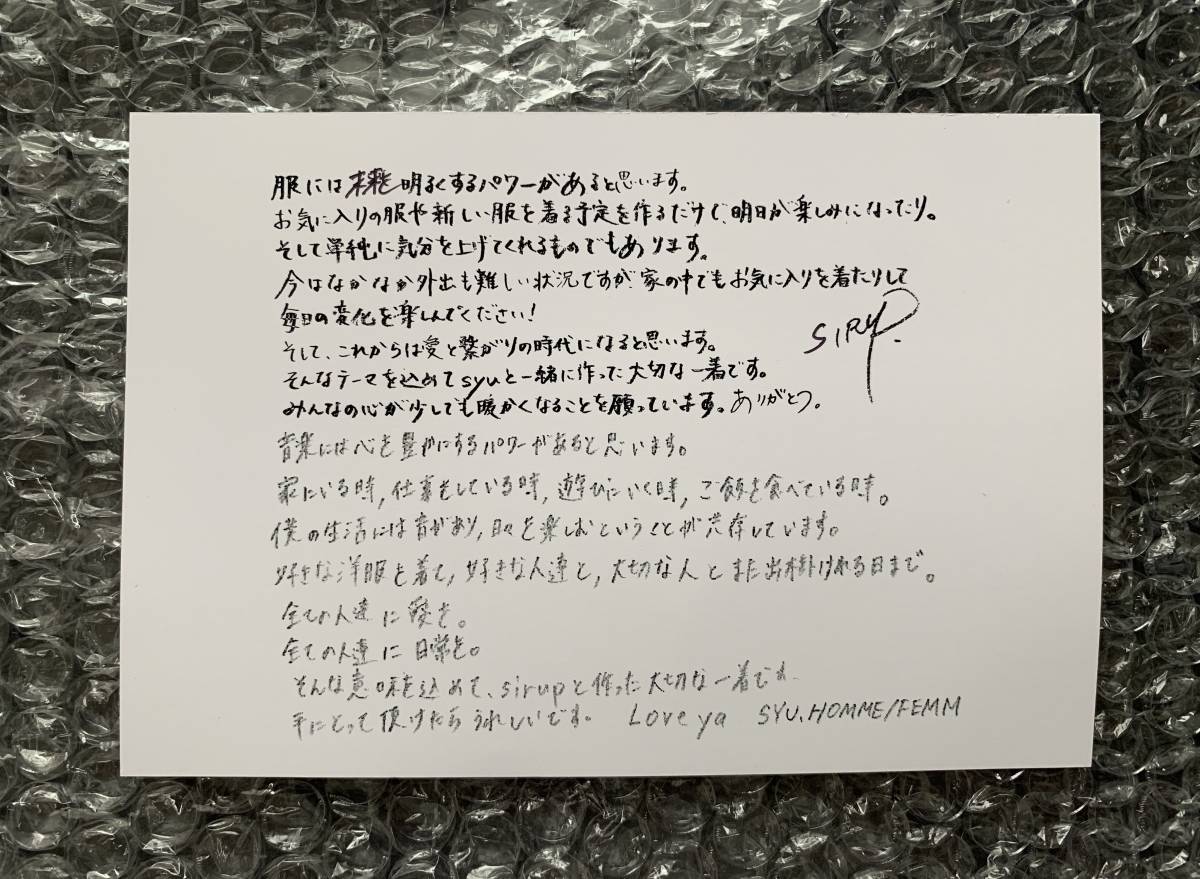 服には未来を明るくするパワーがあると思います。
お気に入りの服や新しい服を着る予定を作るだけで、明日が楽しみになったり。
そして単純に気分を上げてくれるものでもあります。
今はなかなか外出も難しい状況ですが家の中でもお気に入りを着たりして
毎日の変化を楽しんでください!
SIRUP.
そして、これからは愛と繋がりの時代になると思います。
そんなテーマを込めてsyuと一緒に作った大切な一着です。
みんなの心が少しでも暖かくなることを願っています。ありがとう。
音楽には心を豊かにするパワーがあると思います。
家にいる時,仕事をしている時,遊びにいく時,ご飯を食べている時。
僕の生活には音があり,日々を楽しむということが共存しています。
好きな洋服を着て,好きな人達と,大切な人とまた出掛けれる日まで。
全ての人達に愛を。
全ての人達に日常を。
そんな意味を込めて、sirupと作った大切な一着です。
手にとって頂けたらうれしいです。 Love ya SYU.HOMME/FEMM